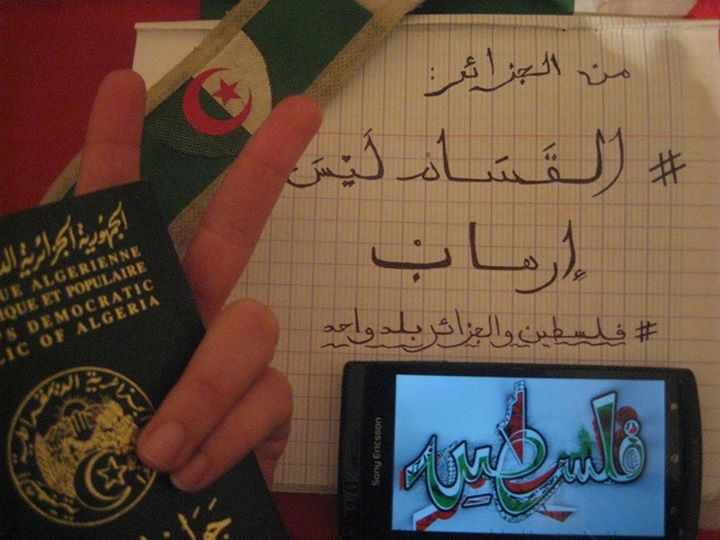 من الجزائر:
# القَسَام لَيْسَ
إرهاب
# فلسطين والجزائر بلد واحد
الجمهورية الجزائرية
UE ALGERIENNE
IQUE ET POPULAIRE
S DEMOCRATIC
LIC OF ALGERIA
SONY Ericsson
فلسطين